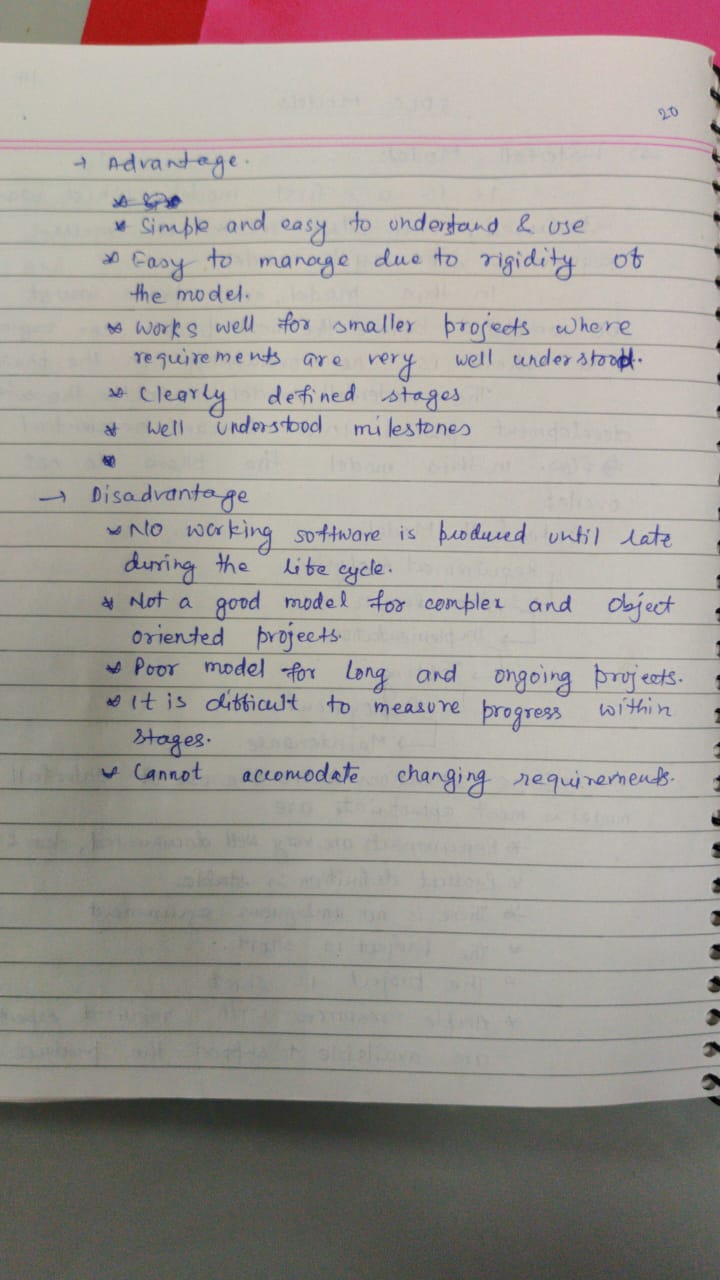 20
→ Advantage.
* Simple and easy to understand & use
* Easy to manage due to rigidity of
the model.
* Works well for smaller projects where
requirements are very well understood.
* Clearly defined stages
* Well understood milestones
*
→ Disadvantage
* No working software is produced until late
during the life cycle.
* Not a good model for complex and Object
oriented projects.
* Poor model for long and ongoing projects.
* It is difficult to measure progress within
stages.
* Cannot accomodate changing requirements.